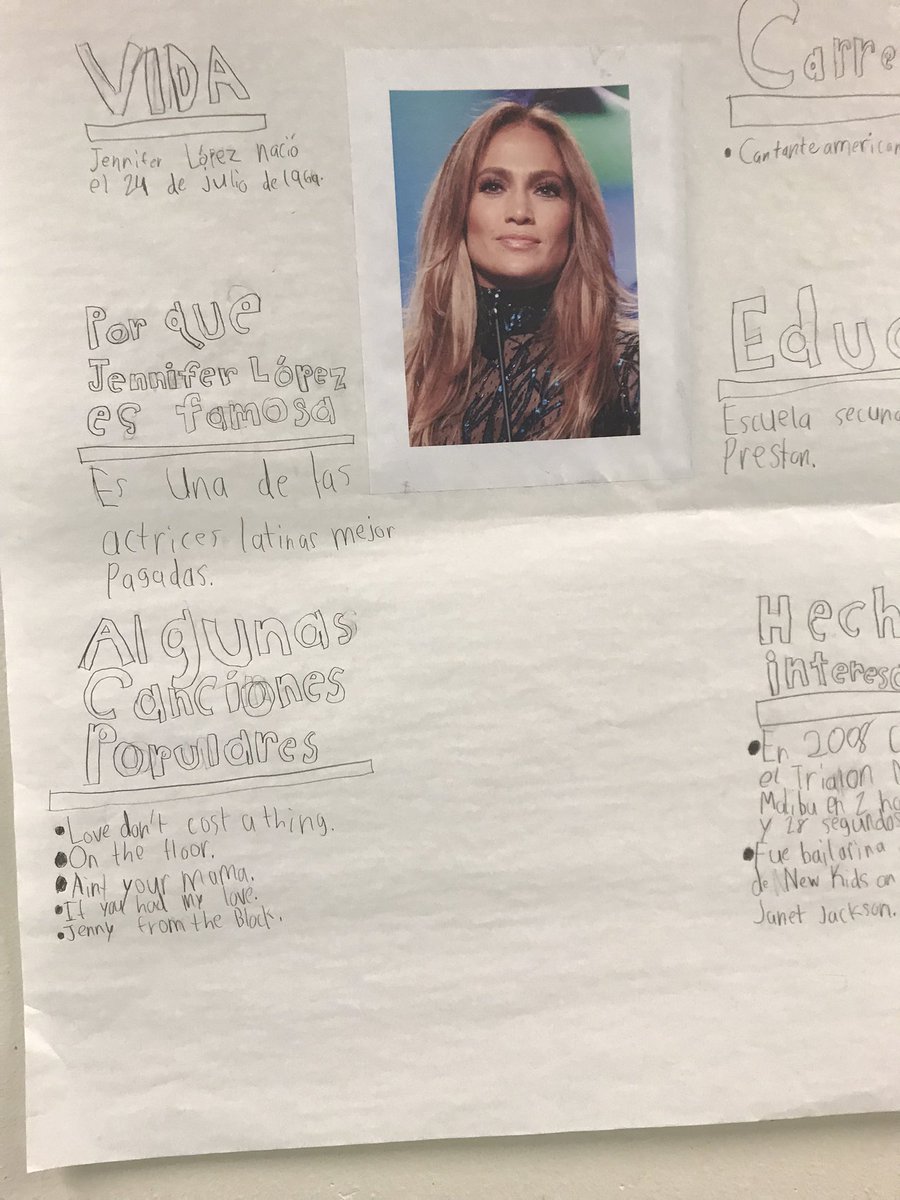 VIDA
Jennifer López nació
el 24 de julio de 1969.
Por que
Jennifer López
es famosa
Es una de las
actrices latinas mejor
pagadas.
Algunas
Canciones
Populares
•Love don't cost a thing.
•On the floor.
•Aint your Mama.
•If you had my love.
•Jenny from the Block.
Carre
• Cantante american
Educ
Escuela secund
Preston.
Hech
interesa
•En 2008
el Trialon
Malibu en 2 ho
y 28 segundos
•Fue bailarina
de New Kids on
Janet Jackson.